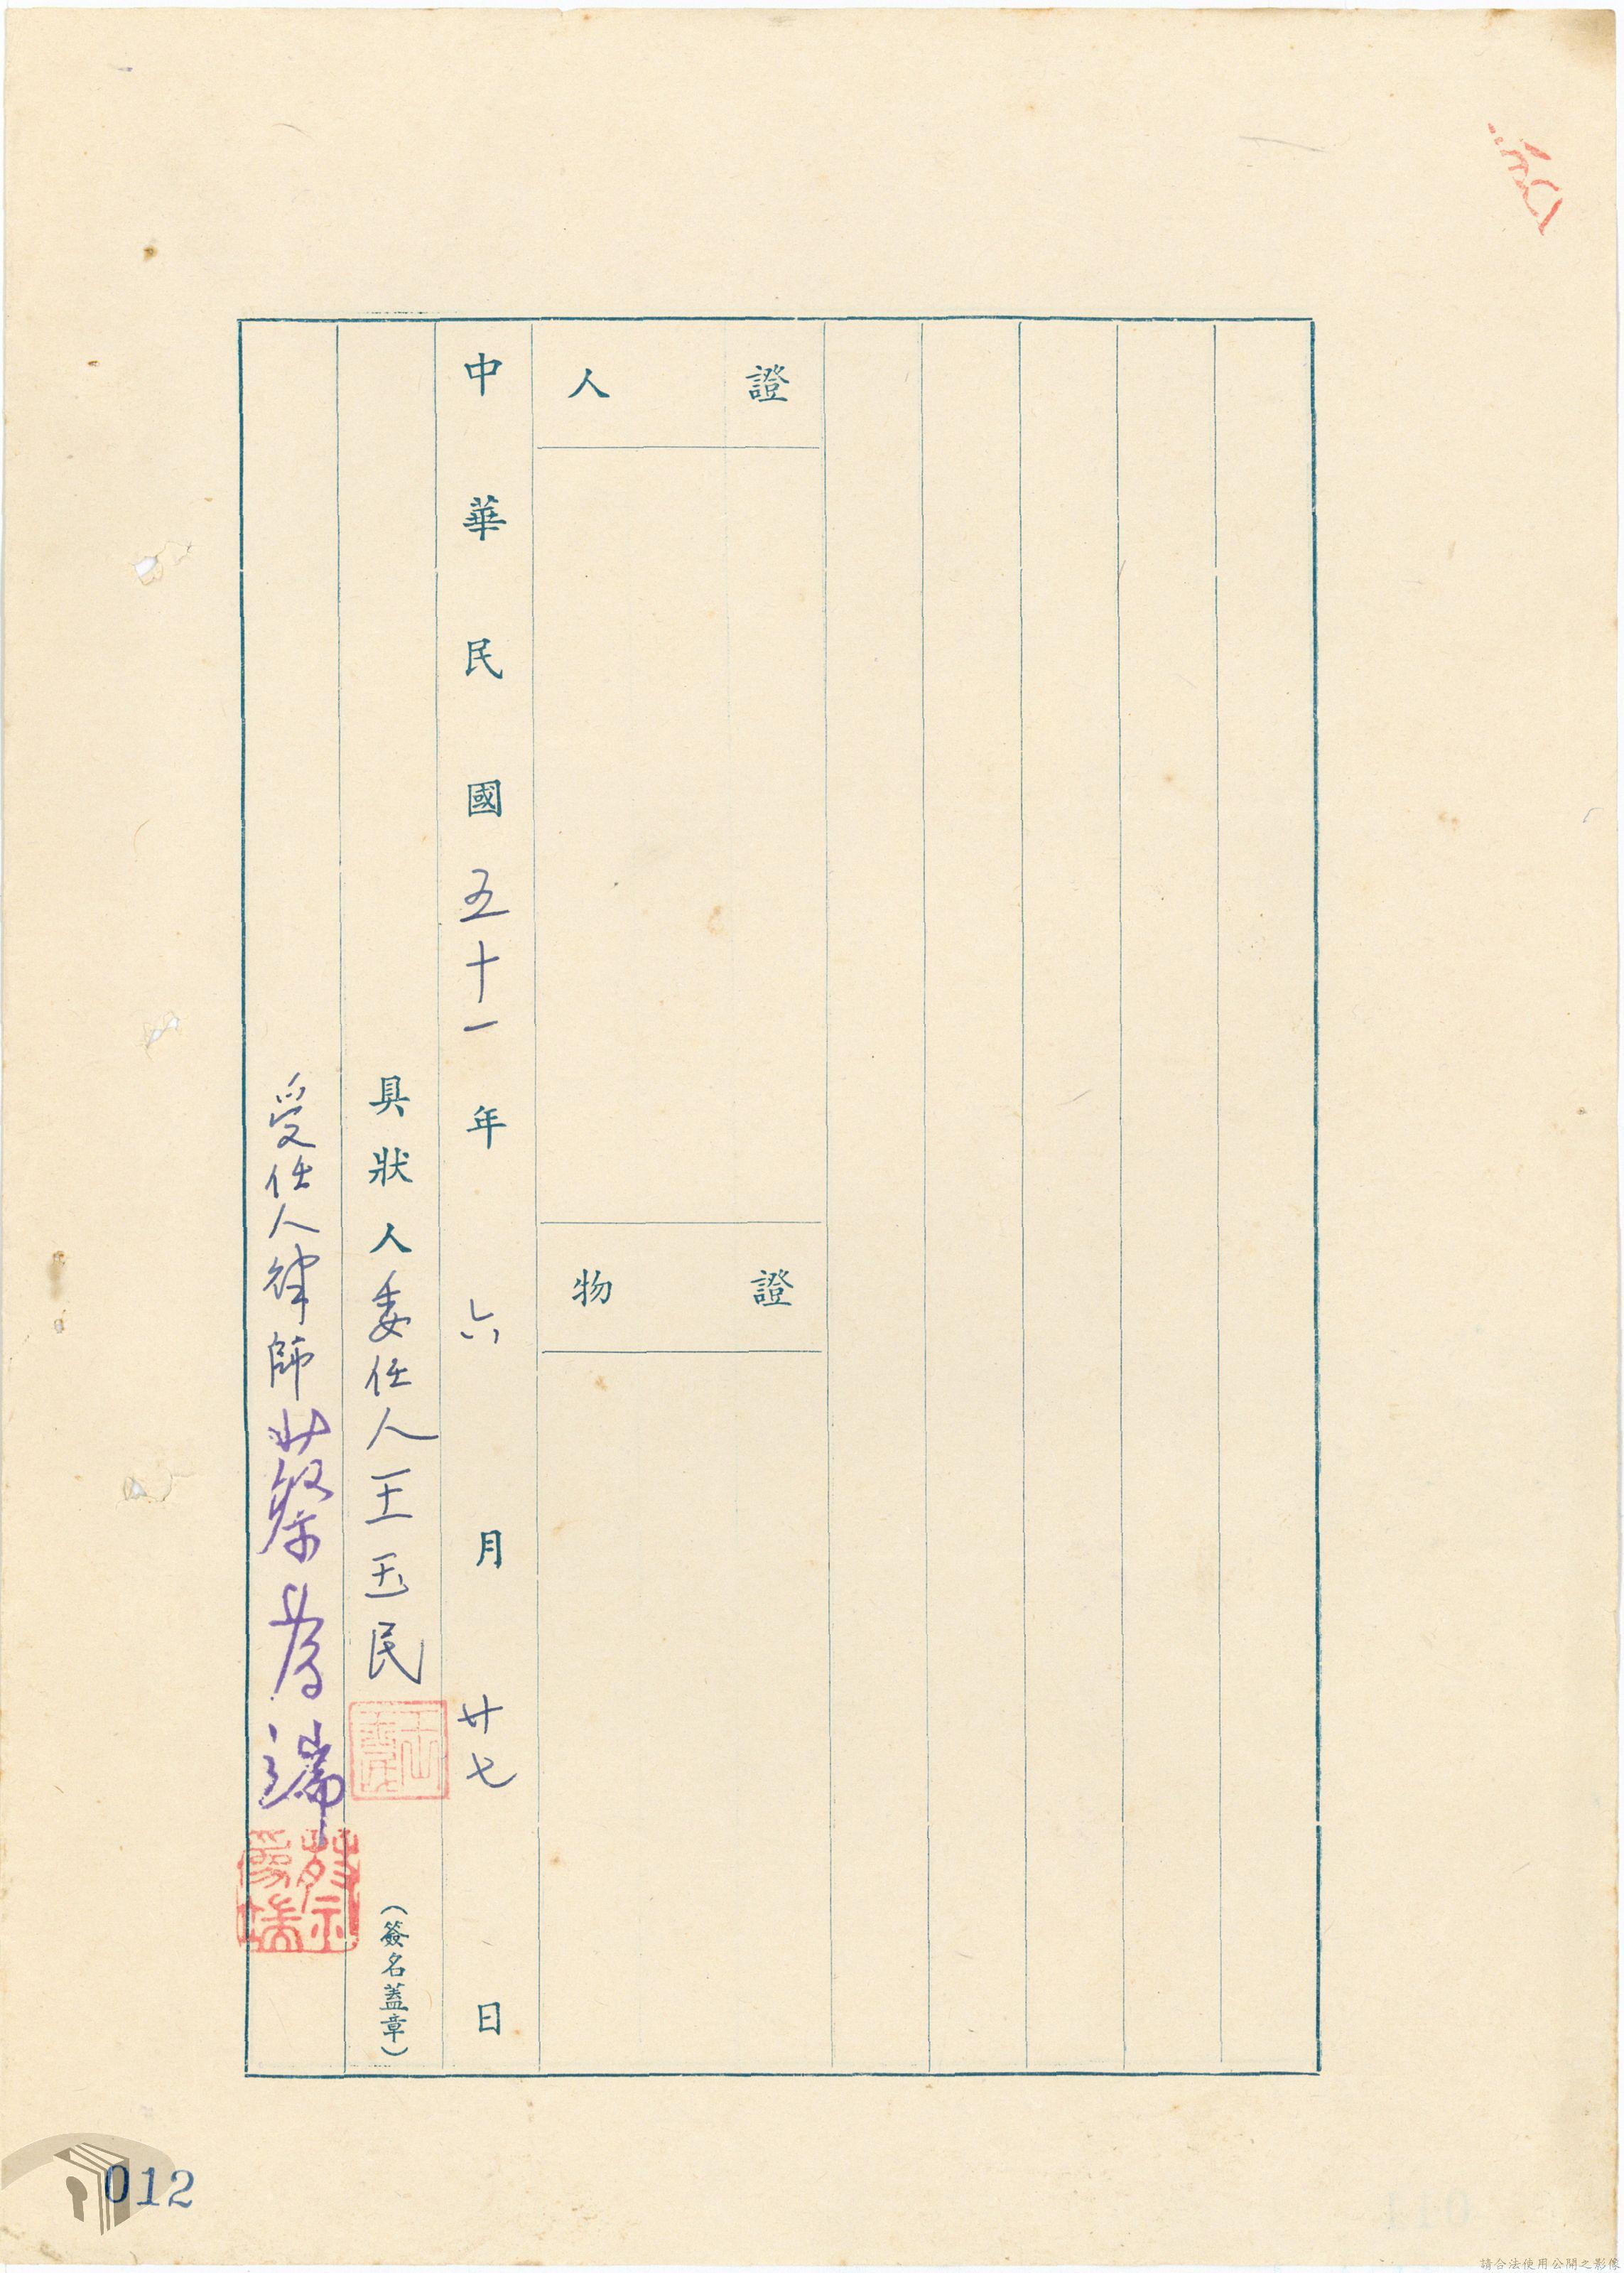 證人
證物
中華民國五十一年六月廿七日
具狀人委任人王玉民(簽名蓋章)
受任人律師蔡為端
蔡為端
012
請合法使用公開之影像